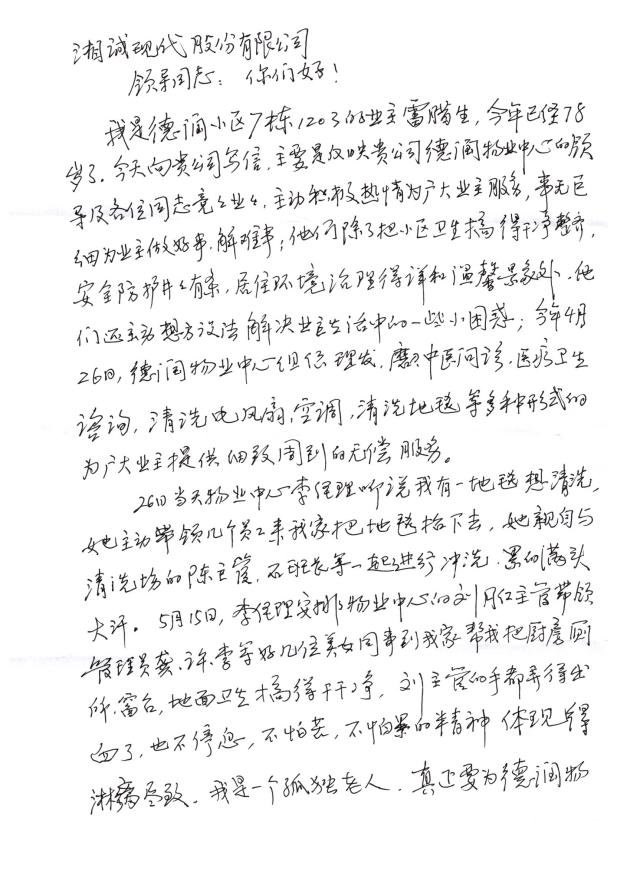 湘诚现代股份有限公司
领导同志：你们好！
我是德润小区7栋1203的业主雷腊生，今年已经78
岁了。今天向贵公司写信，主要是反映贵公司德润物业中心的领
导及各位同志兢兢业业，主动积极热情为广大业主服务，事无巨
细为业主做好事，解难事；他们除了把小区卫生搞得干净整齐，
安全防护井井有条，居住环境治理得详和温馨景象外，他
们还主动想方设法解决业主生活中的一些小困惑；今年4月
26日，德润物业中心组织理发，磨刀，中医问诊，医疗卫生
咨询，清洗电风扇，空调，清洗地毯等多种形式的
为广大业主提供细致周到的无偿服务。
26日当天物业中心李经理听说我有一地毯想清洗，
她主动带领几个员工来我家把地毯抬下去，她亲自与
清洗场的陈主管，石班长等一起进行冲洗，累的满头
大汗。5月15日，李经理安排物业中心的刘月红主管带领
管理员龚、许、李等好几位美女同事到我家帮我把厨房厕
所，窗台，地面卫生搞得干干净，刘主管的手都弄得出
血了，也不停息，不怕苦，不怕累的精神体现得
淋漓尽致。我是一个孤独老人，真正要为德润物